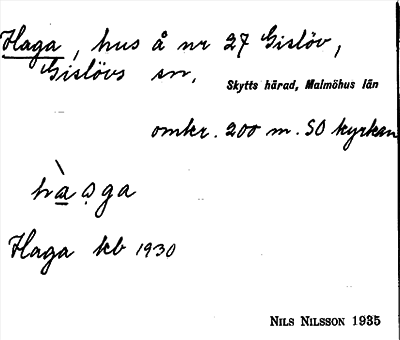 Haga, hus å nr 27 Gislöv,
Gislövs sn,
Skytts härad, Malmöhus län
omkr. 200 m. SO kyrkan
hàạga
Haga kb 1930
NILS NILSSON 1935